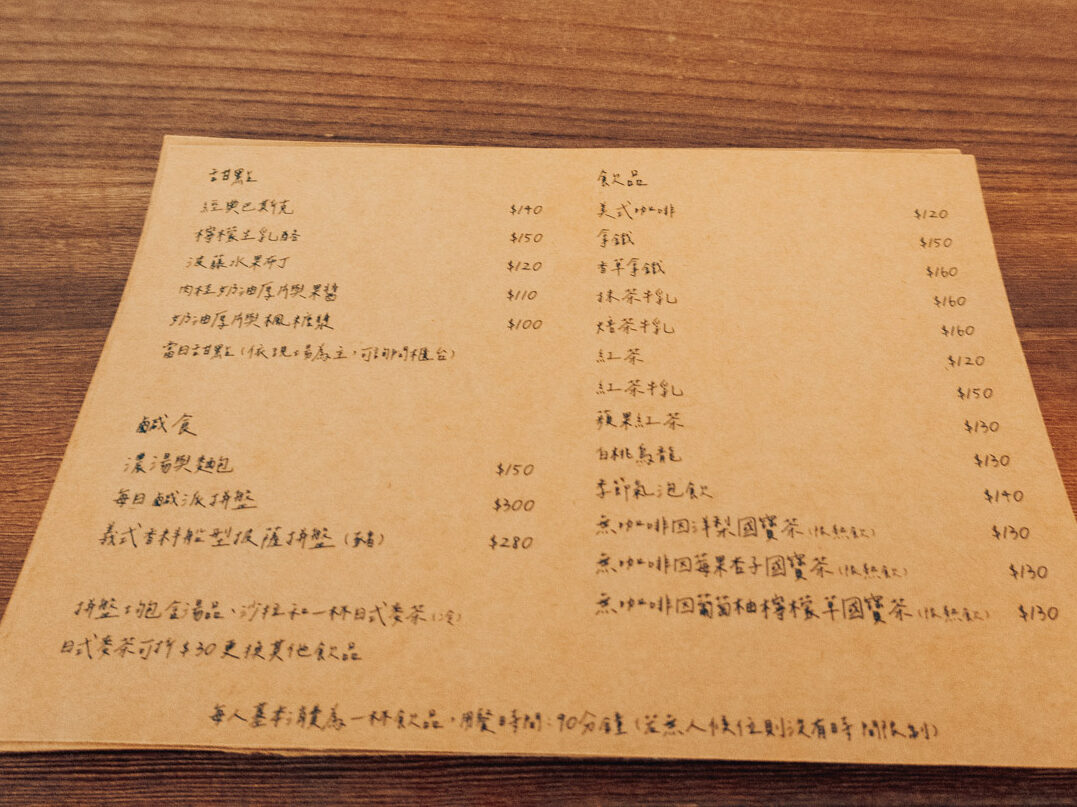 甜點
經典巴斯克 $140
檸檬生乳酪 $150
波蘿水果布丁 $120
肉桂奶油厚片與果醬 $110
奶油厚片與楓糖漿 $100
當日甜點(依現場為主,可詢問櫃台)
鹹食
濃湯與麵包 $150
每日鹹派拼盤 $300
義式香料船型披薩拼盤(豬) $280
拼盤均包含湯品、沙拉和一杯日式麥茶(冷)
日式麥茶可折$30更換其他飲品
飲品
美式咖啡 $120
拿鐵 $150
香草拿鐵 $160
抹茶牛乳 $160
焙茶牛乳 $160
紅茶 $120
紅茶牛乳 $150
蘋果紅茶 $130
白桃烏龍 $130
季節氣泡飲 $140
無咖啡因洋梨國寶茶(限熱飲) $130
無咖啡因莓果杏子國寶茶(限熱飲) $130
無咖啡因葡萄柚檸檬草國寶茶(限熱飲) $130
每人基本消費為一杯飲品,用餐時間:90分鐘(若無人候位則沒有時間限制)